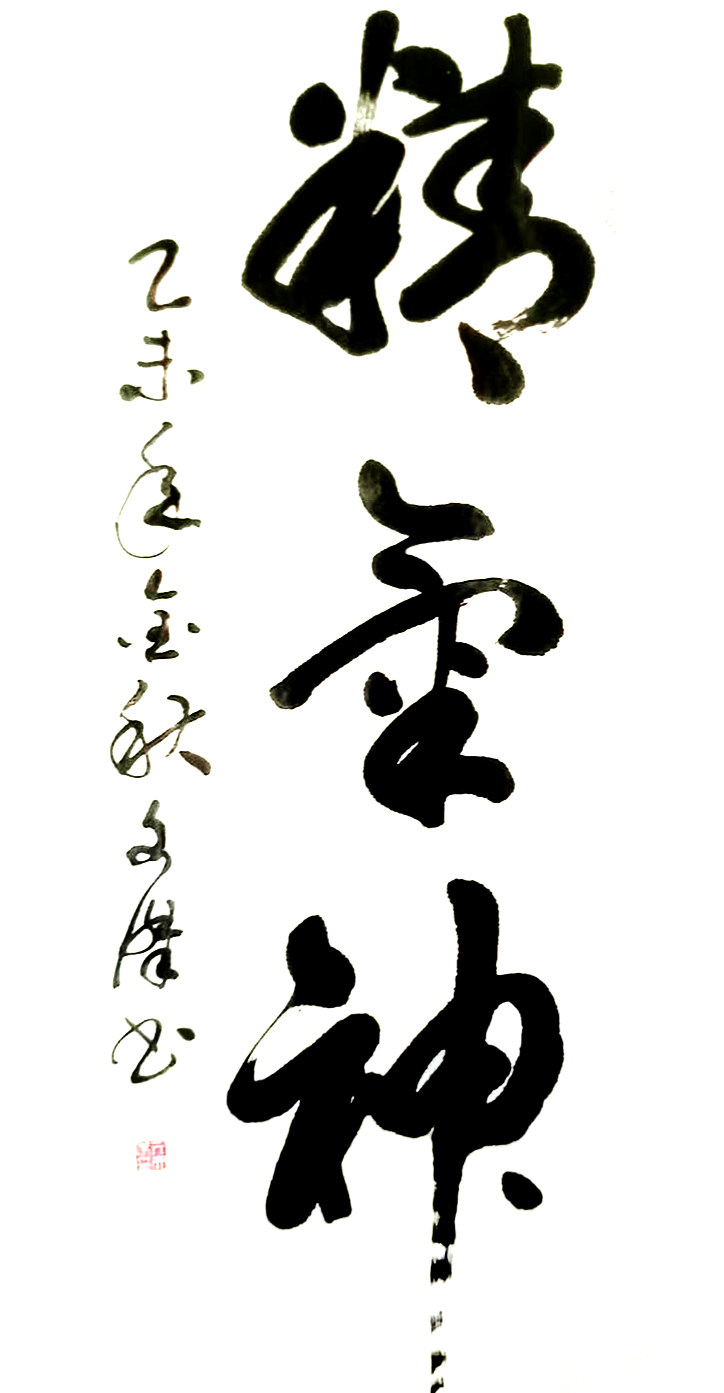 精氣神
乙未年金秋文傑书